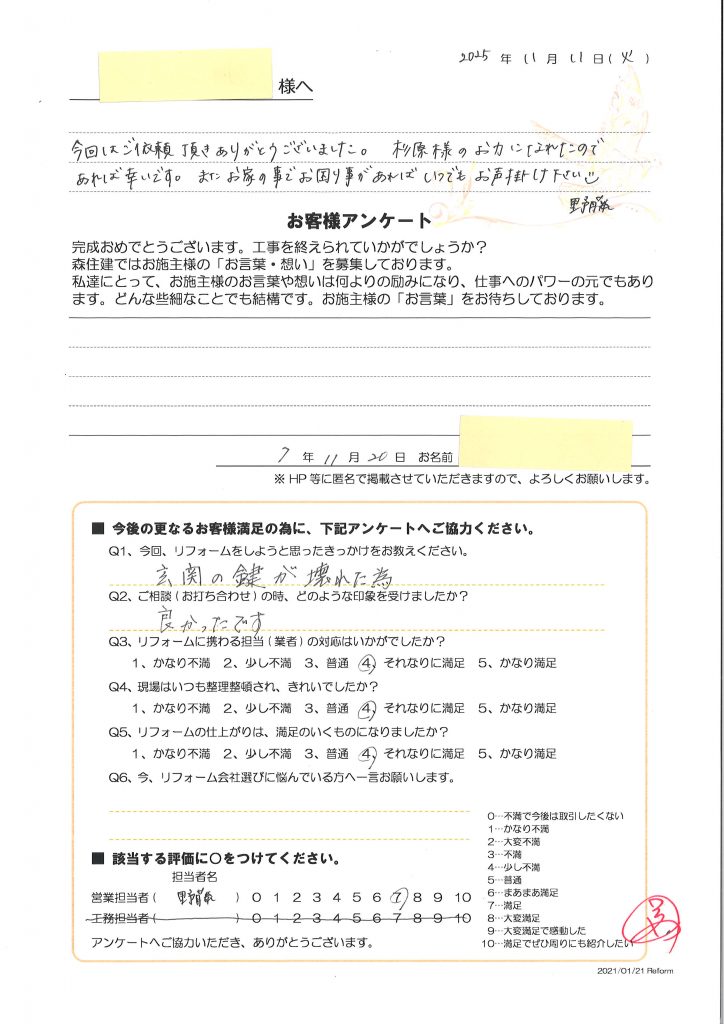 2025年 11月 11日(火)
様へ
今回はご依頼頂きありがとうございました。 杉原様のお力になれたので
あれば幸いです。 またお家の事でお困り事があればいつでもお声掛け下さい
お客様アンケート
完成おめでとうございます。工事を終えられていかがでしょうか？
森住建ではお施主様の「お言葉・想い」を募集しております。
私達にとって、お施主様のお言葉や想いは何よりの励みになり、仕事へのパワーの元でもあり
ます。どんな些細なことでも結構です。お施主様の「お言葉」をお待ちしております。
7年 11月 20日 お名前
※HP等に匿名で掲載させていただきますので、よろしくお願いします。
■ 今後の更なるお客様満足の為に、下記アンケートへご協力ください。
Q1、今回、リフォームをしようと思ったきっかけをお教えください。
玄関の鍵が壊れた為
Q2、ご相談(お打ち合わせ)の時、どのような印象を受けましたか？
良かったです
Q3、リフォームに携わる担当(業者)の対応はいかがでしたか？
1、かなり不満 2、少し不満 3、普通 4、それなりに満足 5、かなり満足
Q4、現場はいつも整理整頓され、きれいでしたか？
1、かなり不満 2、少し不満 3、普通 4、それなりに満足 5、かなり満足
Q5、リフォームの仕上がりは、満足のいくものになりましたか？
1、かなり不満 2、少し不満 3、普通 4、それなりに満足 5、かなり満足
Q6、今、リフォーム会社選びに悩んでいる方へ一言お願いします。
■ 該当する評価に○をつけてください。
担当者名
営業担当者( ) 0 1 2 3 4 5 6 7 8 9 10
工務担当者( ) 0 1 2 3 4 5 6 7 8 9 10
アンケートへご協力いただき、ありがとうございます。
0…不満で今後は取引したくない
1…かなり不満
2…大変不満
3…不満
4…少し不満
5…普通
6…まあまあ満足
7…満足
8…大変満足
9…大変満足で感動した
10…満足でぜひ周りにも紹介したい
2021/01/21 Reform